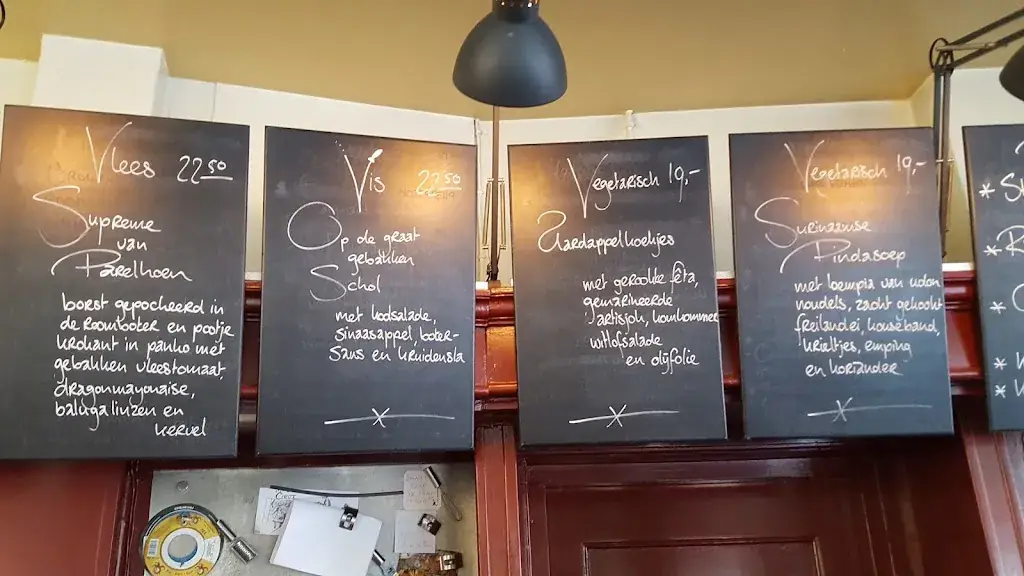 Vlees 22.50
Supreme
van
Parelhoen
borst gepocheerd in
de roomboter en pootje
krokant in panko met
gebakken vleestomaat,
dragonmayonaise,
balugalinzen en
kervel
Vis 22.50
Op de graat
gebakken
Schol
met kodsalade,
sinaasappel, boter-
saus en kruidensla
Vegetarisch 19,-
Aardappelkoekjes
met gerookte fêta,
gemarineerde
artisjok, komkommer
witlofsalade
en olijfolie
Vegetarisch 19,-
Surinaamse
Pindasoep
met loempia van udon
noudels, zacht gekookt
freilandei, kouseband,
krieltjes, emping
en koriander